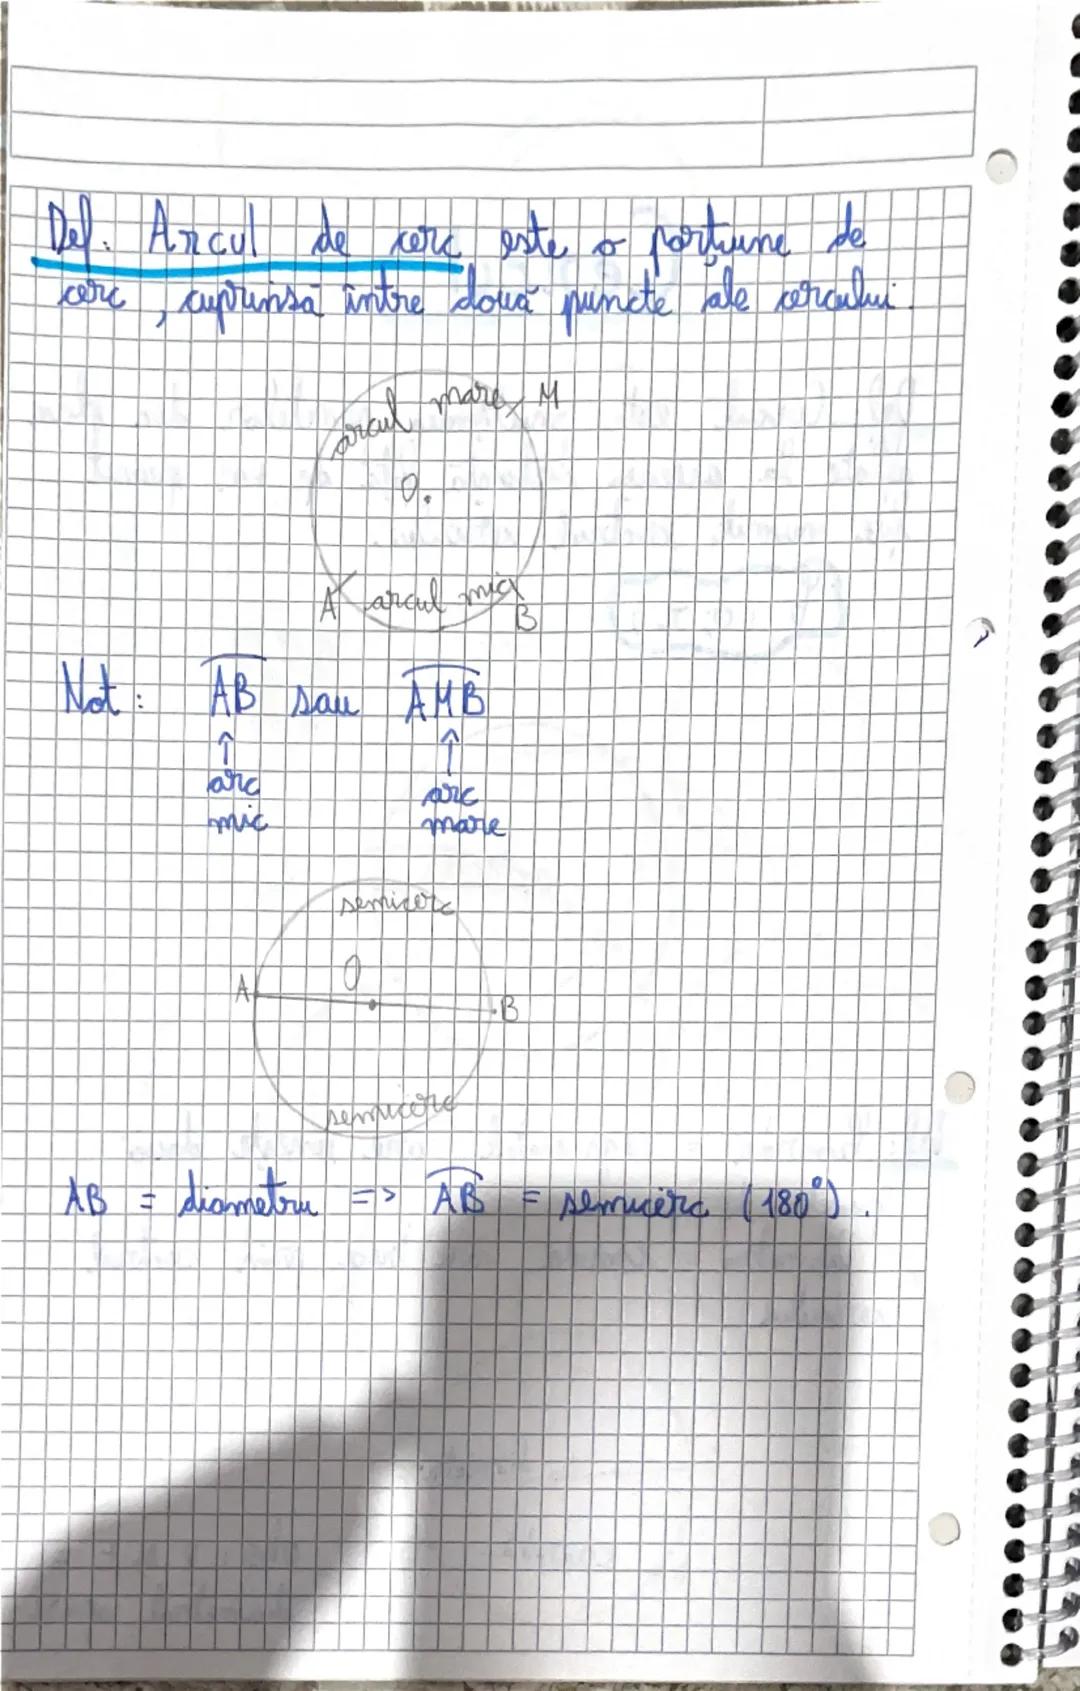 Def. Arcul de cerc este o porțiune de
cerc, cuprinsă între două puncte ale cercului.
arcul mare M
O.
A arcul mic B
Not: AB sau AMB
↑ ↑
arc arc
mic mare
semicerc
O
A B
semicerc
AB = diametru => AB = semicerc (180°).